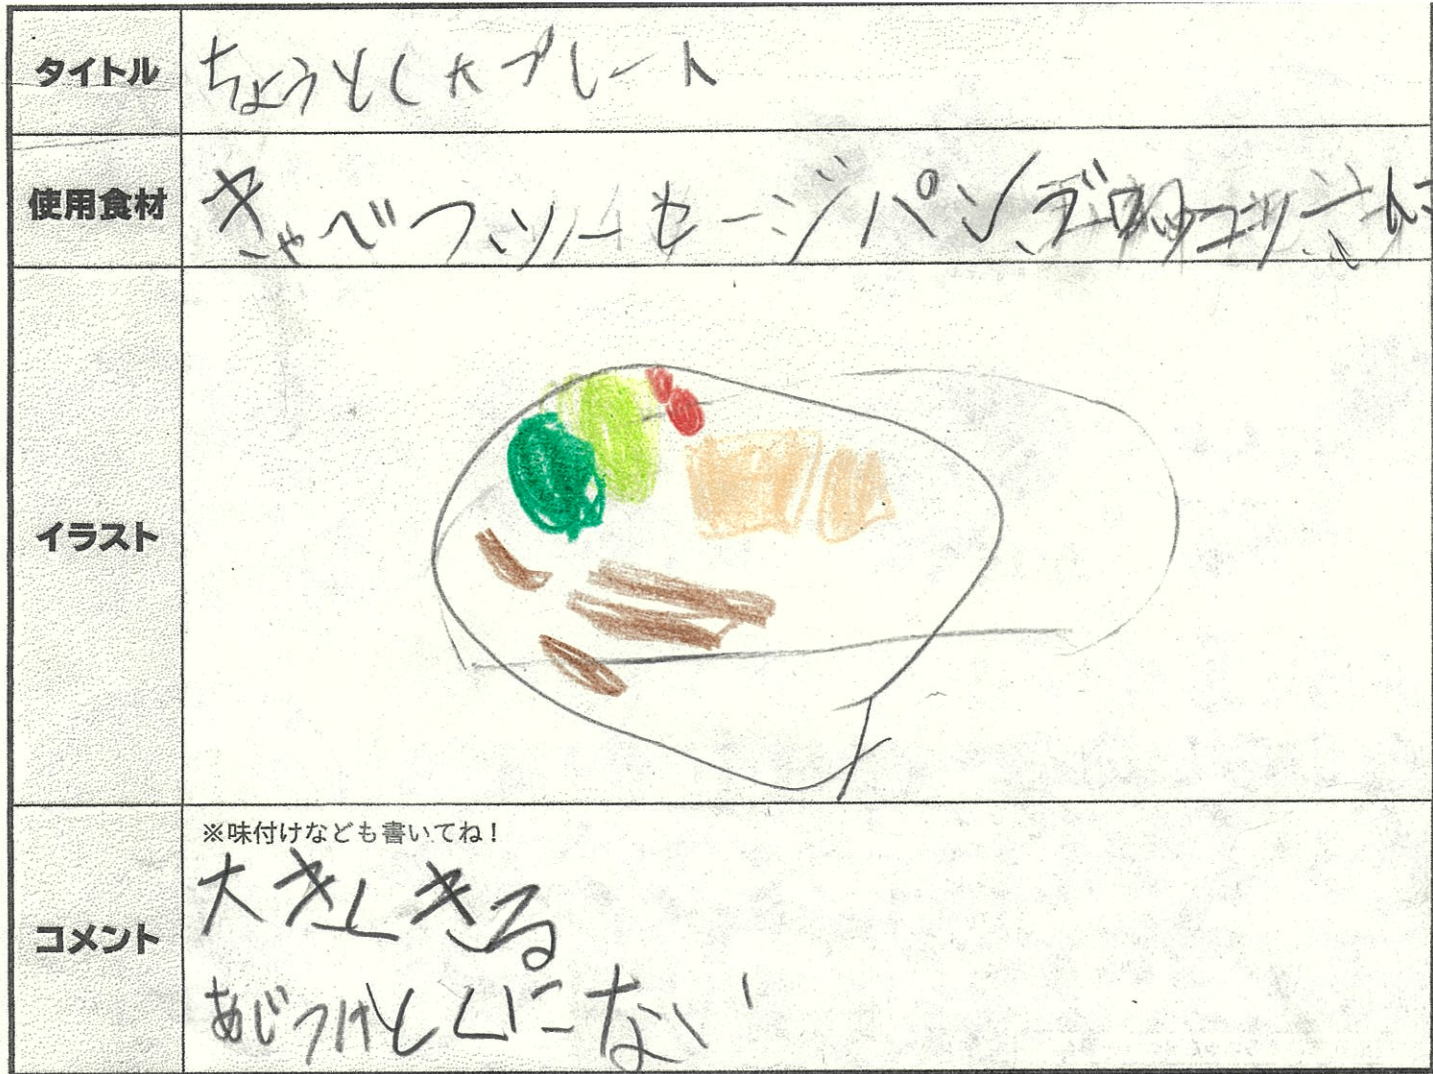 タイトル
ちょうとく大プレート
使用食材
きゃべつソーセージパンブロッコリー
イラスト
コメント
※味付けなども書いてね!
大きくきる
あじつけとくにない